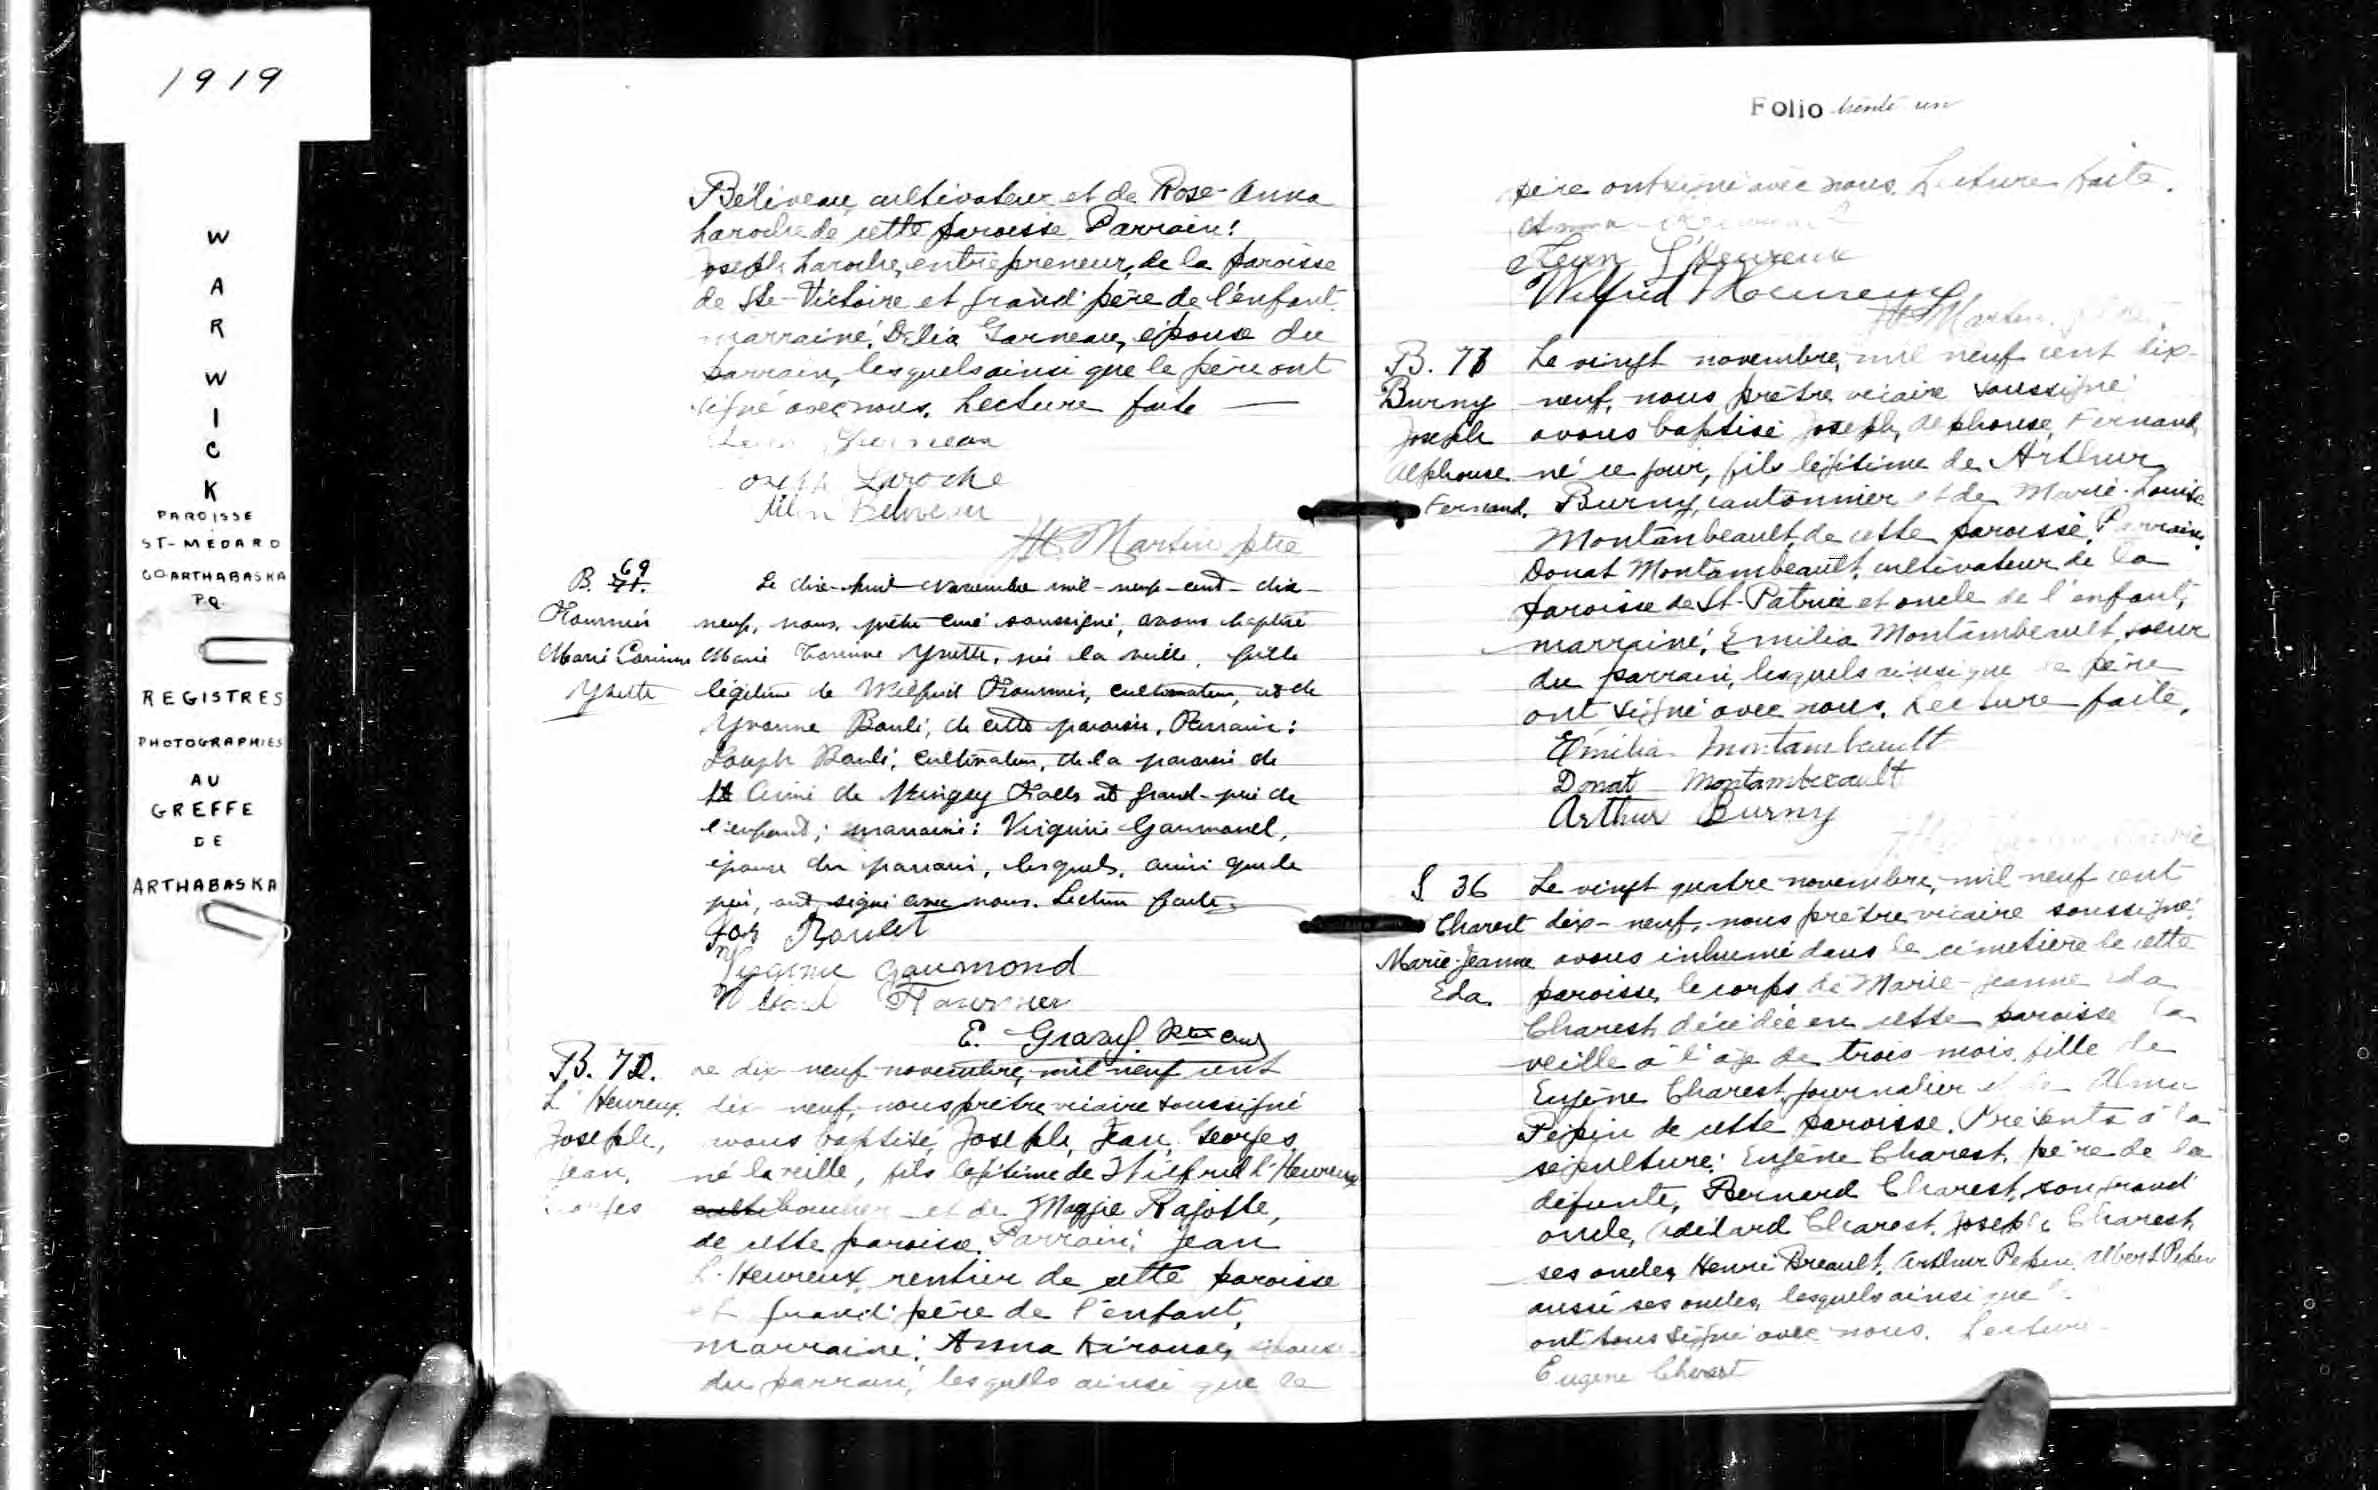 1919
W
A
R
W
I
C
K
PAROISSE
ST-MÉDARD
CO ARTHABASKA
P.Q.
REGISTRES
PHOTOGRAPHIES
AU
GREFFE
DE
ARTHABASKA
Béliveau, cultivateur et de Rose-Anna
Laroche de cette paroisse. Parrain:
Joseph Laroche, entrepreneur, de la paroisse
de Ste-Victoire et grand'père de l'enfant.
marraine: Délia Garneau, épouse du
parrain, lesquels ainsi que le père ont
signé avec nous. Lecture faite
Garneau
Joseph Laroche
Béliveau
Martin ptre
B. 69
Fournier
Marie Corinne
Yvette
Le dix-huit novembre mil-neuf-cent-dix-
neuf, nous, prêtre curé soussigné, avons baptisé
Marie Corinne Yvette, née la veille, fille
légitime de Wilfrid Fournier, cultivateur, et de
Yvonne de cette paroisse. Parrain:
Joseph cultivateur, de la paroisse de
de Falls et grand-père de
l'enfant; marraine: Virginie Gaumond,
épouse du parrain, lesquels, ainsi que le
père, ont signé avec nous. Lecture faite
Jos
Virginie Gaumond
Fournier
E. Gravel
B. 70.
L'Heureux
Joseph,
Jean,
Georges
Le dix-neuf novembre, mil neuf cent
dix-neuf, nous prêtre vicaire soussigné
avons baptisé, Joseph, Jean, Georges,
né la veille, fils légitime de Wilfrid L'Heureux
boucher et de Maggie Rajotte,
de cette paroisse. Parrain: Jean
L'Heureux, rentier de cette paroisse
et grand'père de l'enfant,
marraine: Anna Kirouac, épouse
du parrain, lesquels ainsi que le
Folio trente un
père ont signé avec nous. Lecture faite.
Anna
Jean L'Heureux
Wilfrid L'Heureux
Martin
B. 71
Burny
Joseph
Alphonse
Fernand.
Le vingt novembre, mil neuf cent dix-
neuf, nous prêtre vicaire soussigné
avons baptisé Joseph, Alphonse, Fernand,
né ce jour, fils légitime de Arthur
Burny, cantonnier et de Marie-Louise
Montambeault de cette paroisse. Parrain,
Donat Montambeault, cultivateur de la
paroisse de St-Patrice et oncle de l'enfant,
marraine: Emilia Montambeault, soeur
du parrain, lesquels ainsi que le père
ont signé avec nous. Lecture faite.
Emilia Montambeault
Donat Montambeault
Arthur Burny
S 36
Charest
Marie-Jeanne
Eda
Le vingt quatre novembre, mil neuf cent
dix-neuf, nous prêtre vicaire soussigné
avons inhumé dans le cimetière de cette
paroisse, le corps de Marie-Jeanne Eda
Charest, décédée en cette paroisse la
veille à l'âge de trois mois, fille de
Eugène Charest, journalier et de Alma
Pépin de cette paroisse. Présents à la
sépulture: Eugène Charest, père de la
défunte, Bernard Charest, son grand
oncle, Adélard Charest, Joseph Charest,
ses oncles, Henri Breault, Arthur Pepin, Albert Pepin
aussi ses oncles, lesquels ainsi que
ont tous signé avec nous. Lecture
Eugène Charest